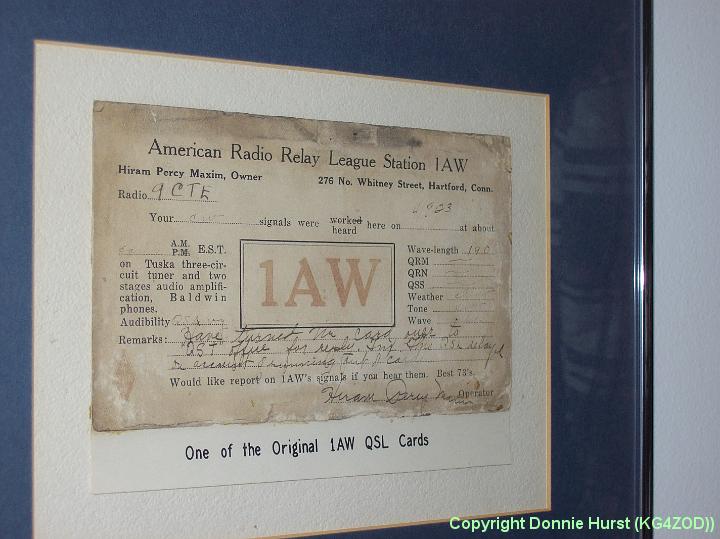 American Radio Relay League Station 1AW
Hiram Percy Maxim, Owner 276 No. Whitney Street, Hartford, Conn.
Radio 9CTE
Your signals were worked heard here on 1923 at about
A.M. P.M. E.S.T.
on Tuska three-cir-
cuit tuner and two
stages audio amplifi-
cation, Baldwin
phones.
Audibility
1AW
Wave-length 190
QRM
QRN
QSS
Weather
Tone
Wave
Remarks: Have turned card over to
QST for QSL delay
account running
Would like report on 1AW's signals if you hear them. Best 73's.
Hiram Percy Maxim Operator
One of the Original 1AW QSL Cards
Copyright Donnie Hurst (KG4ZOD))